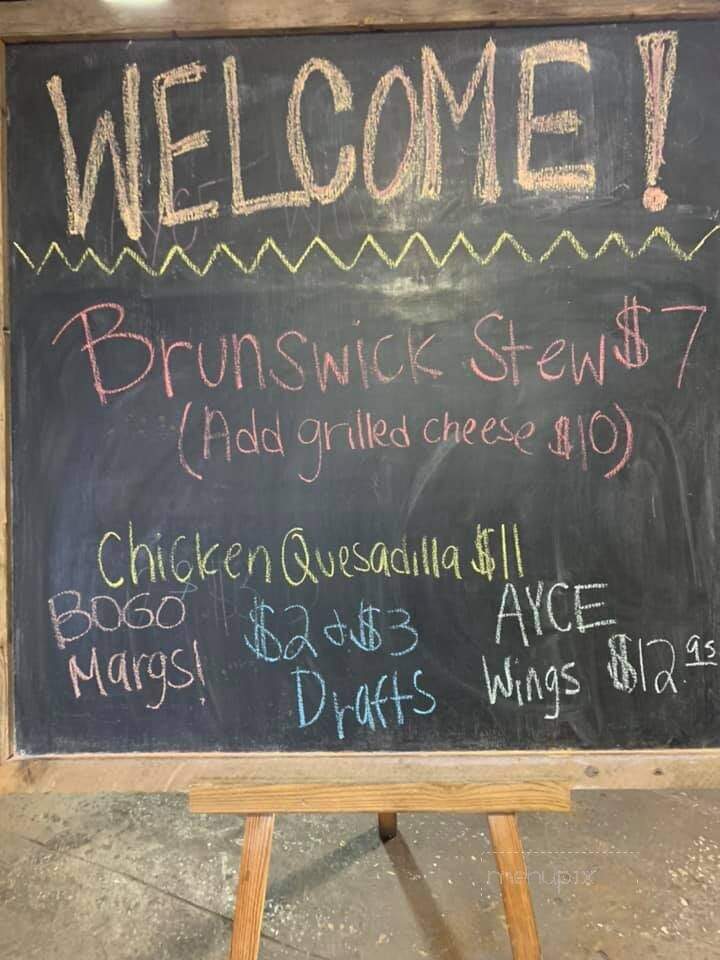 WELCOME!
Brunswick Stew $7
(Add grilled cheese $10)
Chicken Quesadilla $11
BOGO
Margs!
$2 & $3
Drafts
AYCE
Wings $12.95
menupix